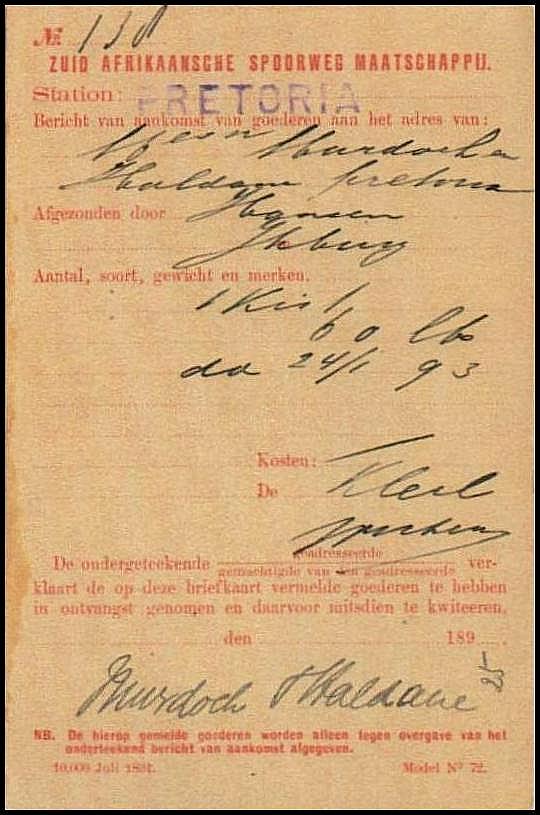 № 138
ZUID AFRIKAANSCHE SPOORWEG MAATSCHAPPIJ.
Station: PRETORIA
Bericht van aankomst van goederen aan het adres van:
Murdoch en
Haldane Pretoria
Afgezonden door Hansen
Jhburg
Aantal, soort, gewicht en merken.
1 Kist
60 lbs
dd 24/1 93
Kosten:
De
De ondergeteekende geadresseerde ver-
gemachtigde van den geadresseerde
klaart de op deze briefkaart vermelde goederen te hebben
in ontvangst genomen en daarvoor mitsdien te kwiteeren.
den 189
Murdoch & Haldane 25
NB. De hierop gemelde goederen worden alleen tegen overgave van het
onderteekend bericht van aankomst afgegeven.
10,000 Juli 1891. Model Nº 72.